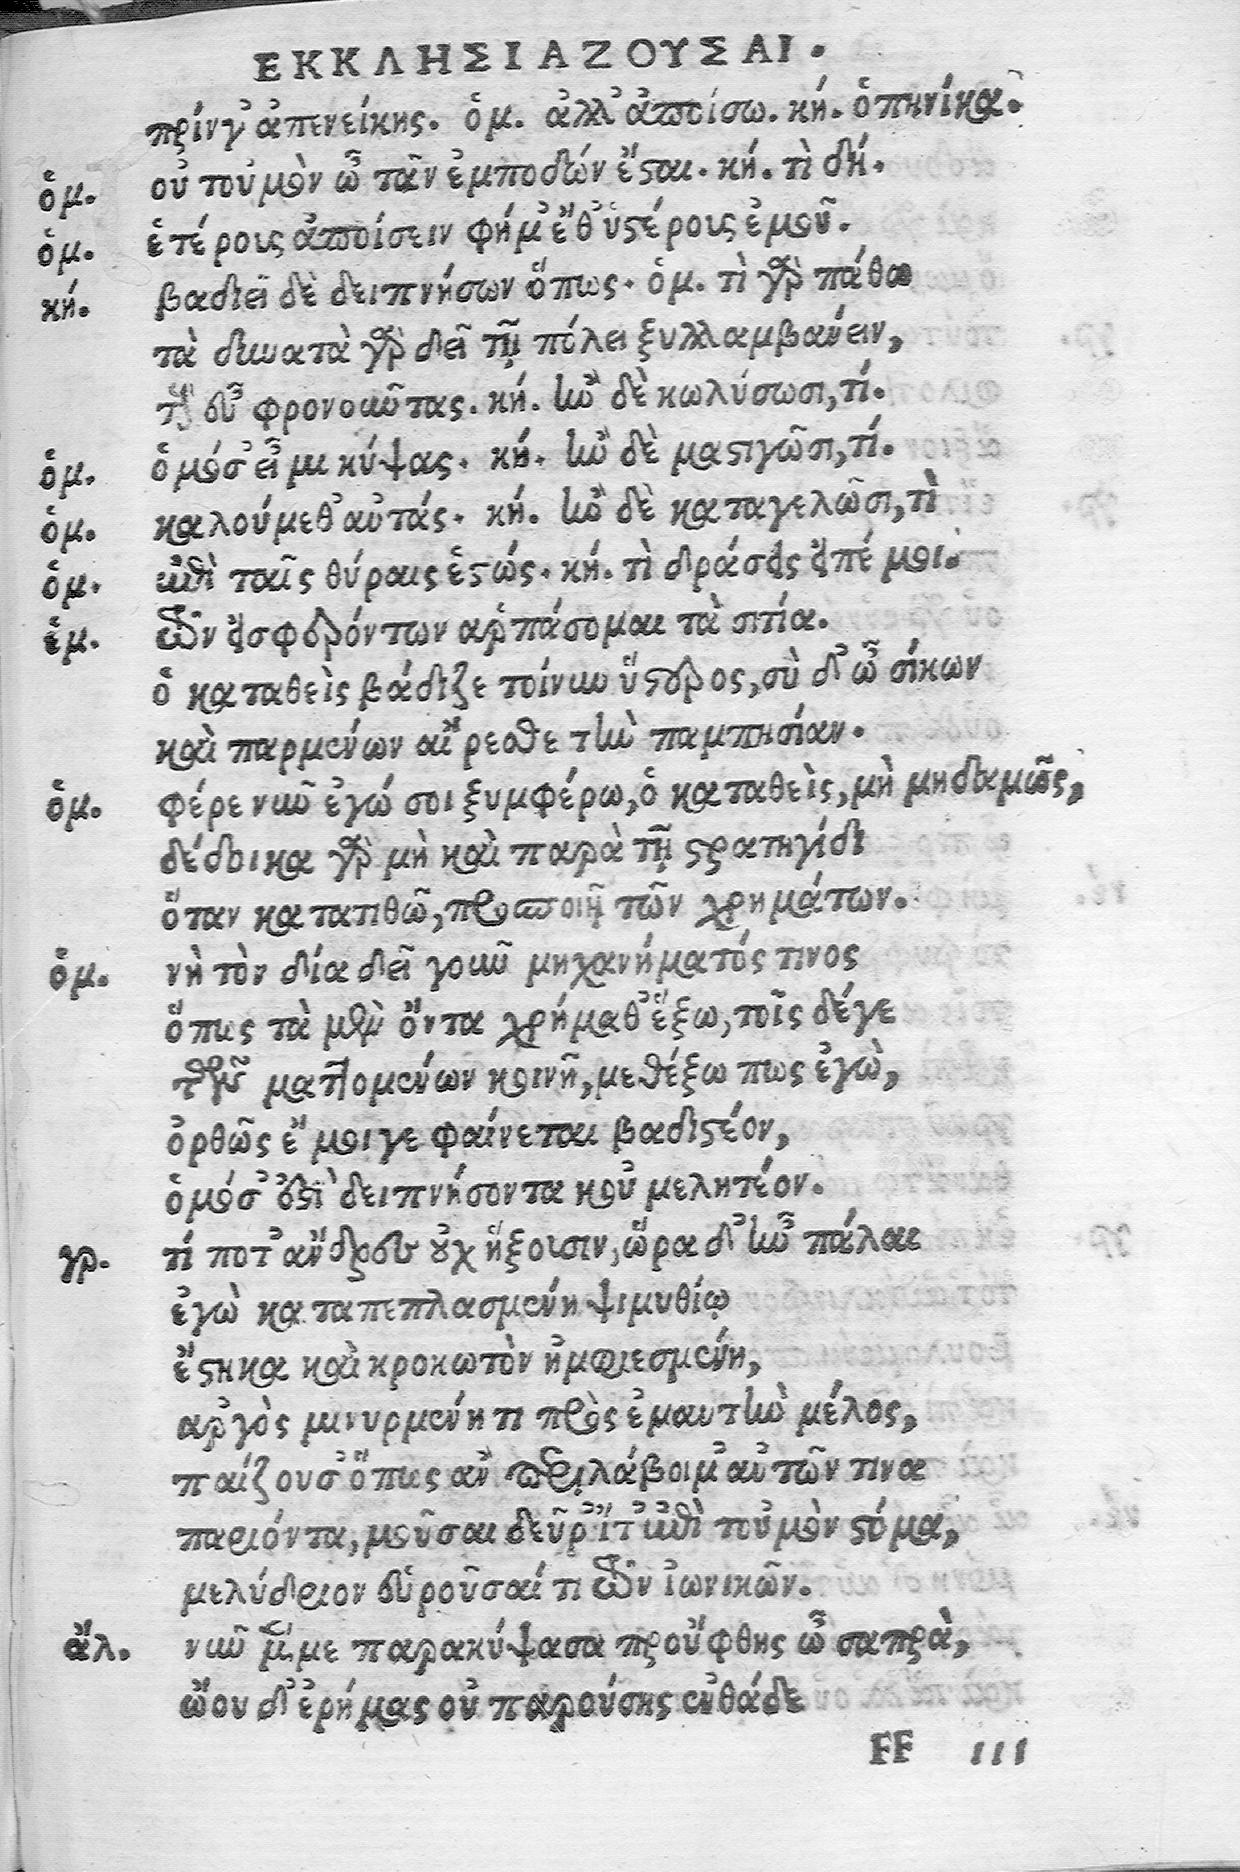 ΕΚΚΛΗΣΙΑΖΟΥΣΑΙ.
πρίνγ' ἀπενείκης. ὁμ. ἀλλ' ἀποίσω. κή. ὁπηνίκα.
ὁμ. οὐ τοὐμὸν ὦ τᾶν ἐμποδὼν ἔσται. κή. τὶ δή.
ὁμ. ἑτέροις ἀποίσειν φήμ' ἔθ' ὑστέροις ἐμοῦ.
κή. βαδιεῖ δὲ δειπνήσων ὅπως. ὁμ. τὶ γὰρ πάθω
τὰ δυνατὰ γὰρ δεῖ τῇ πόλει ξυλλαμβάνειν,
τοὺς εὖ φρονοῦντας. κή. ἢν δὲ κωλύσωσι, τί.
ὁμ. ὁμόσ' εἶμι κύψας. κή. ἢν δὲ μαστιγῶσι, τί.
ὁμ. καλούμεθ' αὐτάς. κή. ἢν δὲ καταγελῶσι, τὶ
ὁμ. ἐπὶ ταῖς θύραις ἑστώς. κή. τὶ δράσεις εἰπέ μοι.
ἑμ. τῶν εἰσφερόντων ἁρπάσομαι τὰ σιτία.
ὁ καταθεὶς βάδιζε τοίνυν ὕστερος, σὺ δ' ὦ σίκων
καὶ παρμένων αἴρεσθε τὴν παμπησίαν.
ὁμ. φέρε νῦν ἐγώ σοι ξυμφέρω, ὁ καταθεὶς, μὴ μηδαμῶς,
δέδοικα γὰρ μὴ καὶ παρὰ τῇ στρατηγίδι
ὅταν κατατιθῶ, προσποιῇ τῶν χρημάτων.
ὁμ. νὴ τὸν δία δεῖ γοῦν μηχανήματός τινος
ὅπως τὰ μὲν ὄντα χρήμαθ' ἕξω, τοῖς δέγε
τῶν ματτομένων κοινῇ, μεθέξω πως ἐγὼ,
ὀρθῶς ἔμοιγε φαίνεται βαδιστέον,
ὁμόσ' ἐστὶ δειπνήσοντα κοὐ μελητέον.
γρ. τί ποτ' ἄνδρες οὐχ ἥξουσιν, ὥρα δ' ἦν πάλαι
ἐγὼ καταπεπλασμένη ψιμυθίῳ
ἕστηκα καὶ κροκωτὸν ἠμφιεσμένη,
ἀργὸς μινυρμένη τι πρὸς ἐμαυτὴν μέλος,
παίζουσ' ὅπως ἂν περιλάβοιμ' αὐτῶν τινα
παριόντα, μοῦσαι δεῦρ' ἴτ' ἐπὶ τοὐμὸν στόμα,
μελύδριον εὑροῦσαί τι τῶν ἰωνικῶν.
ἄλ. νῦν μέν με παρακύψασα προὔφθης ὦ σαπρὰ,
ᾤου δ' ἐρήμας οὐ παρούσης ἐνθάδε
FF III